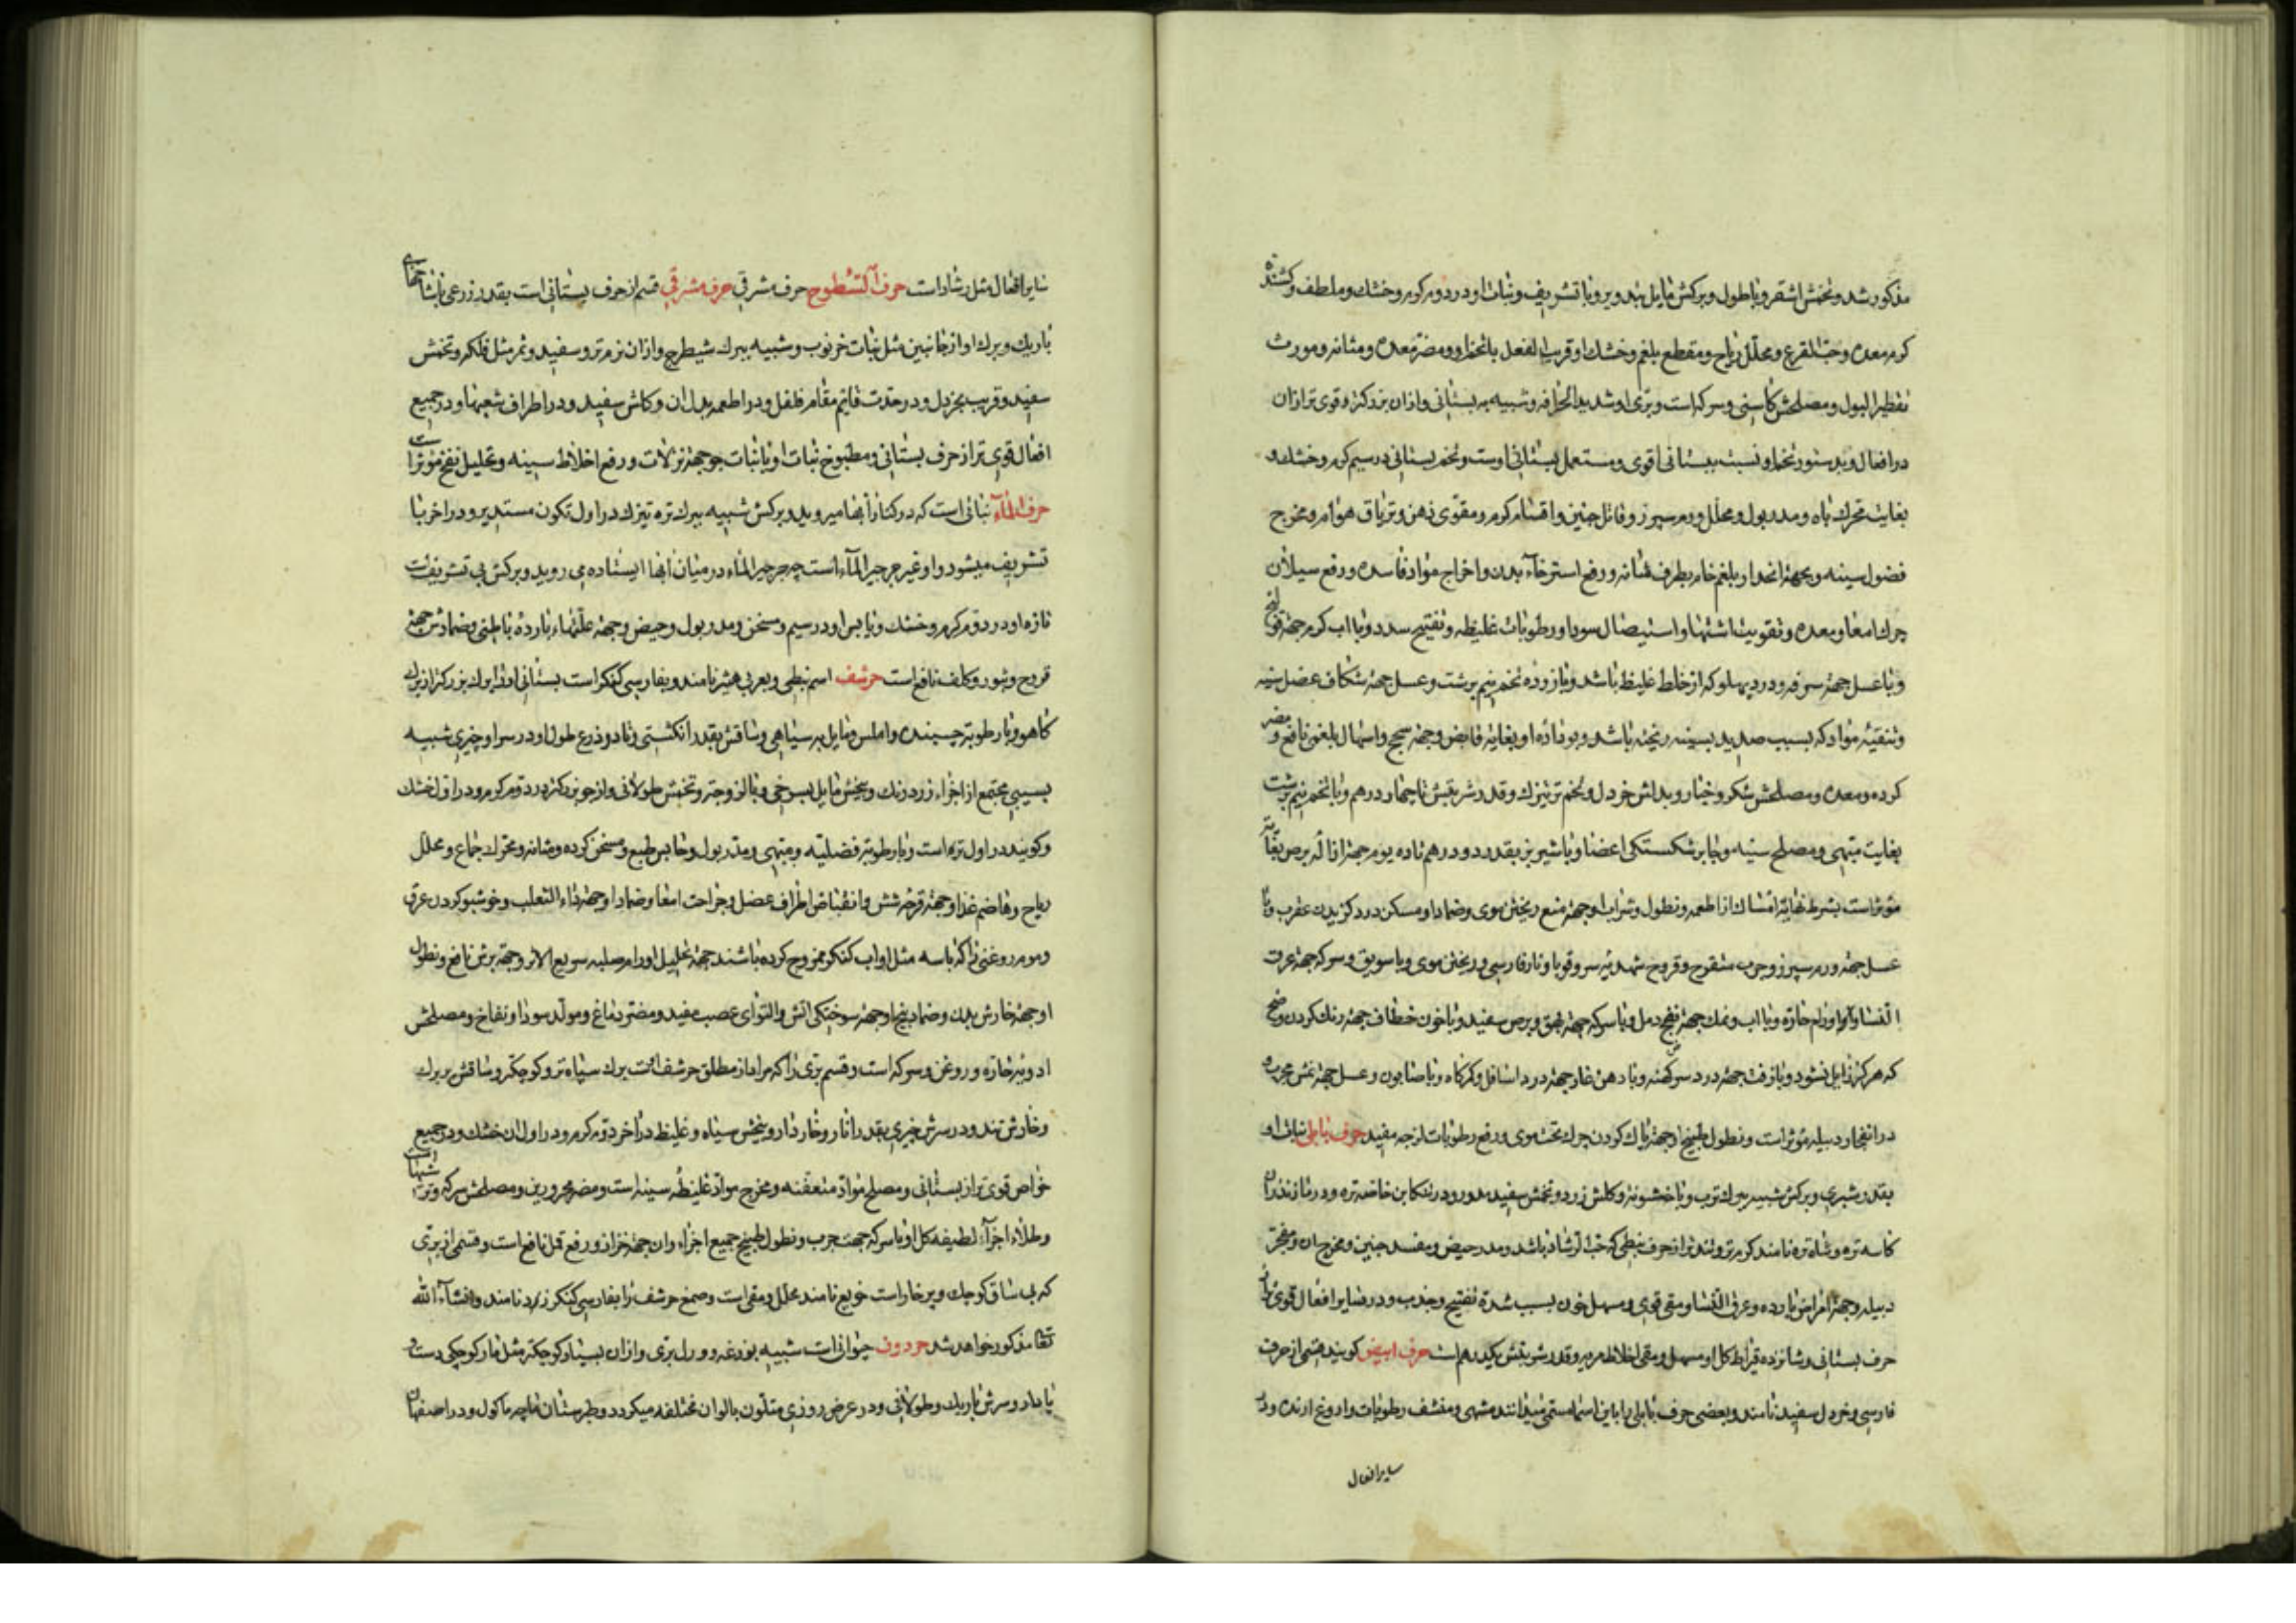 مذکور شد و تخمش اشقر و با طول و برکش مایل بتدویر و با تشریف و نبات او در دوم کرم و خشك و ملطف و کشنده
کرم معده و حب القرع و محلل ریاح و مقطع بلغم و خشك او قریب الفعل بتخم او و مضر معده و مثانه و مورث
تقطیر البول و مصلحش کاسنی و سرکه است و بری او شدید الحرافه و شبیه به بستانی و ازان بزرکتر و قوی تر ازان
در افعال و بدستور تخم او نسبت ببستانی اقوی و مستعمل بستانی اوست و تخم بستانی در سیم کرم و خشك و
بغایت محرك باه و مدر بول و محلل ورم سپرز و قاتل جنین و اقسام کرم و مقوی ذهن و تریاق هوام و مخرج
فضول سینه و بجهة انحدار بلغم خام بطرف مثانه و رفع استرخاء بدن و اخراج مواد فاسده و رفع سیلان
چرك امعا و معده و تقویت اشتها و استیصال سودا و رطوبات غلیظه و تفتیح سدد و با اب کرم جهة قولنج
و با عسل جهة سرفه و درد پهلو که از خلط غلیظ باشد و با زرده تخم نیم برشت و عسل جهة شکاف عضل سینه
و تنقیه مواد که بسبب صدید بسینه ریخته باشد و بو داده او بغایة قابض و جهة سحج و اسهال بلغمی نافع و مضر
کرده و معده و مصلحش شکر و خیار و بدلش خردل و تخم ترتیزك و قدر شربتش تا چهار درهم و با تخم نیم برشت
بغایت مبهی و مصلح سینه و جابر شکستکی اعضا و با شیر بز بقدر دو درهم تا ده یوم جهة ازاله برص بغایت
موثر است بشرط نهایة امساك از اطعمه و نطول و شراب او جهة منع ریختن موی و ضماد او مسکن درد کزیدن عقرب و با
عسل جهة ورم سپرز و جرب متقرح و قروح شهدیه سر و قوبا و نار فارسی و ریختن موی و با سویق و سرکه جهة عرق
النسا و اورام حاره و با اب و نمك جهة نضج دمل و با سرکه جهة بهق و برص سفید و با خون خطاف جهة رنك کردن وضح
که هرکز زایل نشود و با زفت جهة درد سر کهنه و با دهن غار جهة درد اسافل و کرکاه و با صابون و عسل جهة نمش مجرب و
در انفجار دبیله موثر است و نطول طبیخ او جهة پاك کردن چرك تحت موی و رفع رطوبات لزجه مفید حرف بابلی نبات او
بقدر شبری و برکش شبیه ببرك ترب و با خشونة و کلش زرد و تخمش سفید مدور و در تنکابن خاصه تره و در مازندران
کاسه تره و شاه تره نامند کرم تر و تند تر از حرف نبطی که حب الرشاد باشد و مدر حیض و مفسد جنین و مخرج ان و مفجر
دبیله و جهة امراض بارده و عرق النسا و مقی قوی و مسهل خون بسبب شدة تفتیح و جذب و در سایر افعال قوی تر از
حرف بستانی و شانزده قیراط کل او مسهل و مقی اخلاط مریه و قدر شربتش یکدرهم است حرف ابیض کویند قسمی از حرف
فارسی و خردل سفید نامند و بعضی حرف بابلی را باین اسم مسمی میدانند مشهی و منشف رطوبات و اروغ ارنده و در
سایر افعال
سایر افعال مثل رشاد است حرف السطوح حرف مشرقی حرف مشرقی قسم از حرف بستانی است بقدر زرعی با شاخهای
باریك و برك او از جانبین مثل نبات خرنوب و شبیه ببرك شیطرج و ازان نرم تر و سفید و ثمر مثل فلکه و تخمش
سفید و قریب بخردل و در حدت قایم مقام فلفل و در اطعمه بدل ان و کلش سفید و در اطراف شعبها و در جمیع
افعال قوی تر از حرف بستانی و مطبوخ نبات او با نبات جو جهة نزلات و رفع اخلاط سینه و تحلیل نفخ موثر است
حرف الماء نباتی است که در کنار ابها میروید و برکش شبیه ببرك تره تیزك در اول تکون مستدیر و در اخر با
تشریف میشود و او غیر جرجیر الماء است چه جرجیر الماء در میان ابها ایستاده می روید و برکش بی تشریف است
تازه او در دوم کرم و خشك و یابس او در سیم و مسخن و مدر بول و حیض و جهة علتهاء بارده باطنی و ضمادش جهة
قروح و بثور و کلف نافع است حرشف اسم نبطی و بعربی هیشر نامند و بفارسی کنکر است بستانی او را برك بزرکتر از برك
کاهو و با رطوبة چسبنده و املس و مایل به سیاهی و ساقش بقدر انکشتی و تا دو ذرع طول او در سر او چیزی شبیه
بسیبی مجتمع از اجزاء زرد رنك و بیخش مایل بسرخی و با لزوجة و تخمش طولانی و از جو بزرکتر در دوم کرم و در اول خشك
و کویند در اول تر است و با رطوبة فضلیه و مبهی و مدر بول و حابس طبع و مسخن کرده و مثانه و محرك جماع و محلل
ریاح و هاضم غذا و جهة قرحه شش و انقباض اطراف عضل و جراحت امعا و ضماد او جهة داء الثعلب و خوشبو کردن عرق
و موم روغنی را که با سه مثل او اب کنکر ممزوج کرده باشند جهة تحلیل اورام صلبه سریع الاثر و جهة برش نافع و نطول
او جهة خارش بدن و ضماد بیخ او جهة سوختکی اتش و التوای عصب مفید و مضر دماغ و مولد سودا و نفاخ و مصلحش
ادویه حاره و روغن و سرکه است و قسم بری را که مراد از مطلق حرشف است برك سیاه تر و کوچکتر و ساقش پر برك
و خارش تند و در سرش چیزی بقدر انار و خار دار و بیخش سیاه و غلیظ در آخر دوم کرم و در اول ان خشك و در جمیع
خواص قوی تر از بستانی و مصلح مواد متعفنه و مخرج مواد غلیظه سینه است و مضر محرورین و مصلحش سرکه و ترشیها است
و طلاء اجزاء لطیفه کل او با سرکه جهت جرب و نطول طبیخ جمیع اجزاء ان جهة حزاز و رفع قمل نافع است و قسمی از بری
که بی ساق کوچك و پر خار است خوبع نامند محلل و مقی است و صمغ حرشف را بفارسی کنکر زد نامند و انشاء الله
تعا مذکور خواهد شد حردون حیوانی است شبیه بوزغه و ورل بری و ازان بسیار کوچکتر مثل مار کوچکی دست و
پا دار و سرش باریك و طولانی و در عرض روزی متلون بالوان مختلفه میکردد و طبرستان ماچه ماکول و در اصفهان